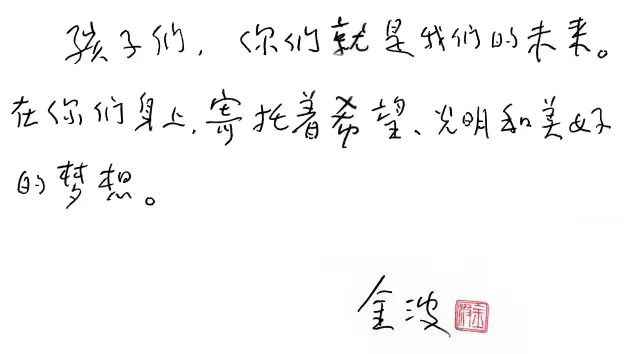 孩子们，你们就是我们的未来。
在你们身上，寄托着希望、光明和美好
的梦想。
金波